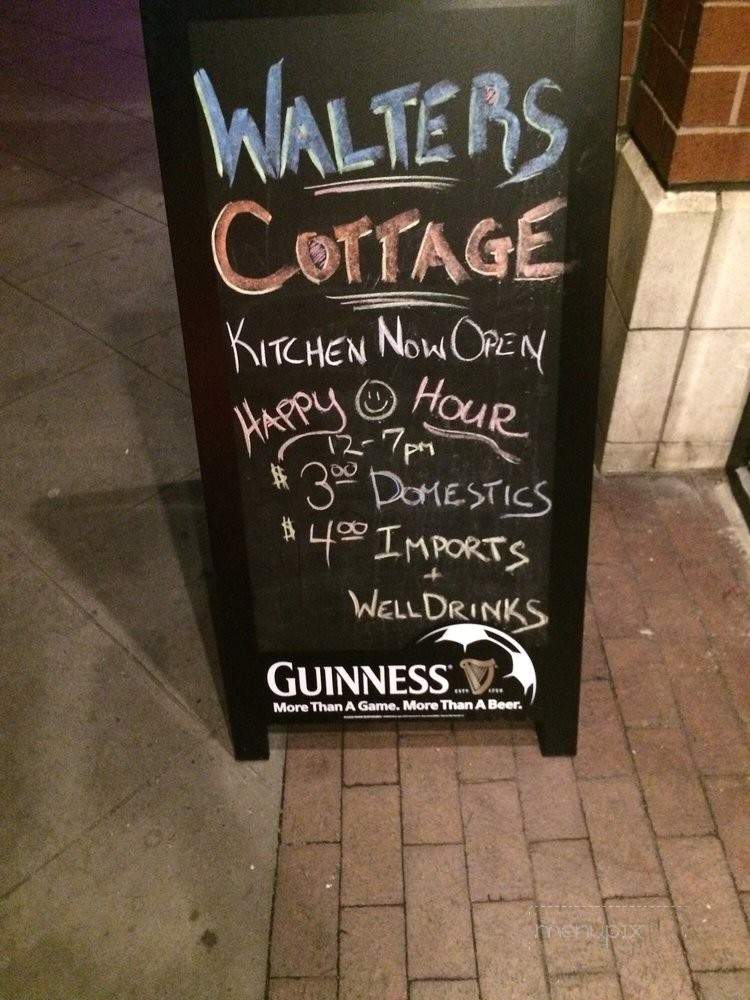 WALTERS
COTTAGE
KITCHEN NOW OPEN
HAPPY HOUR
12-7pm
$3.00 DOMESTICS
$4.00 IMPORTS
+
WELL DRINKS
GUINNESS
ESTD 1759
More Than A Game. More Than A Beer.
menupix